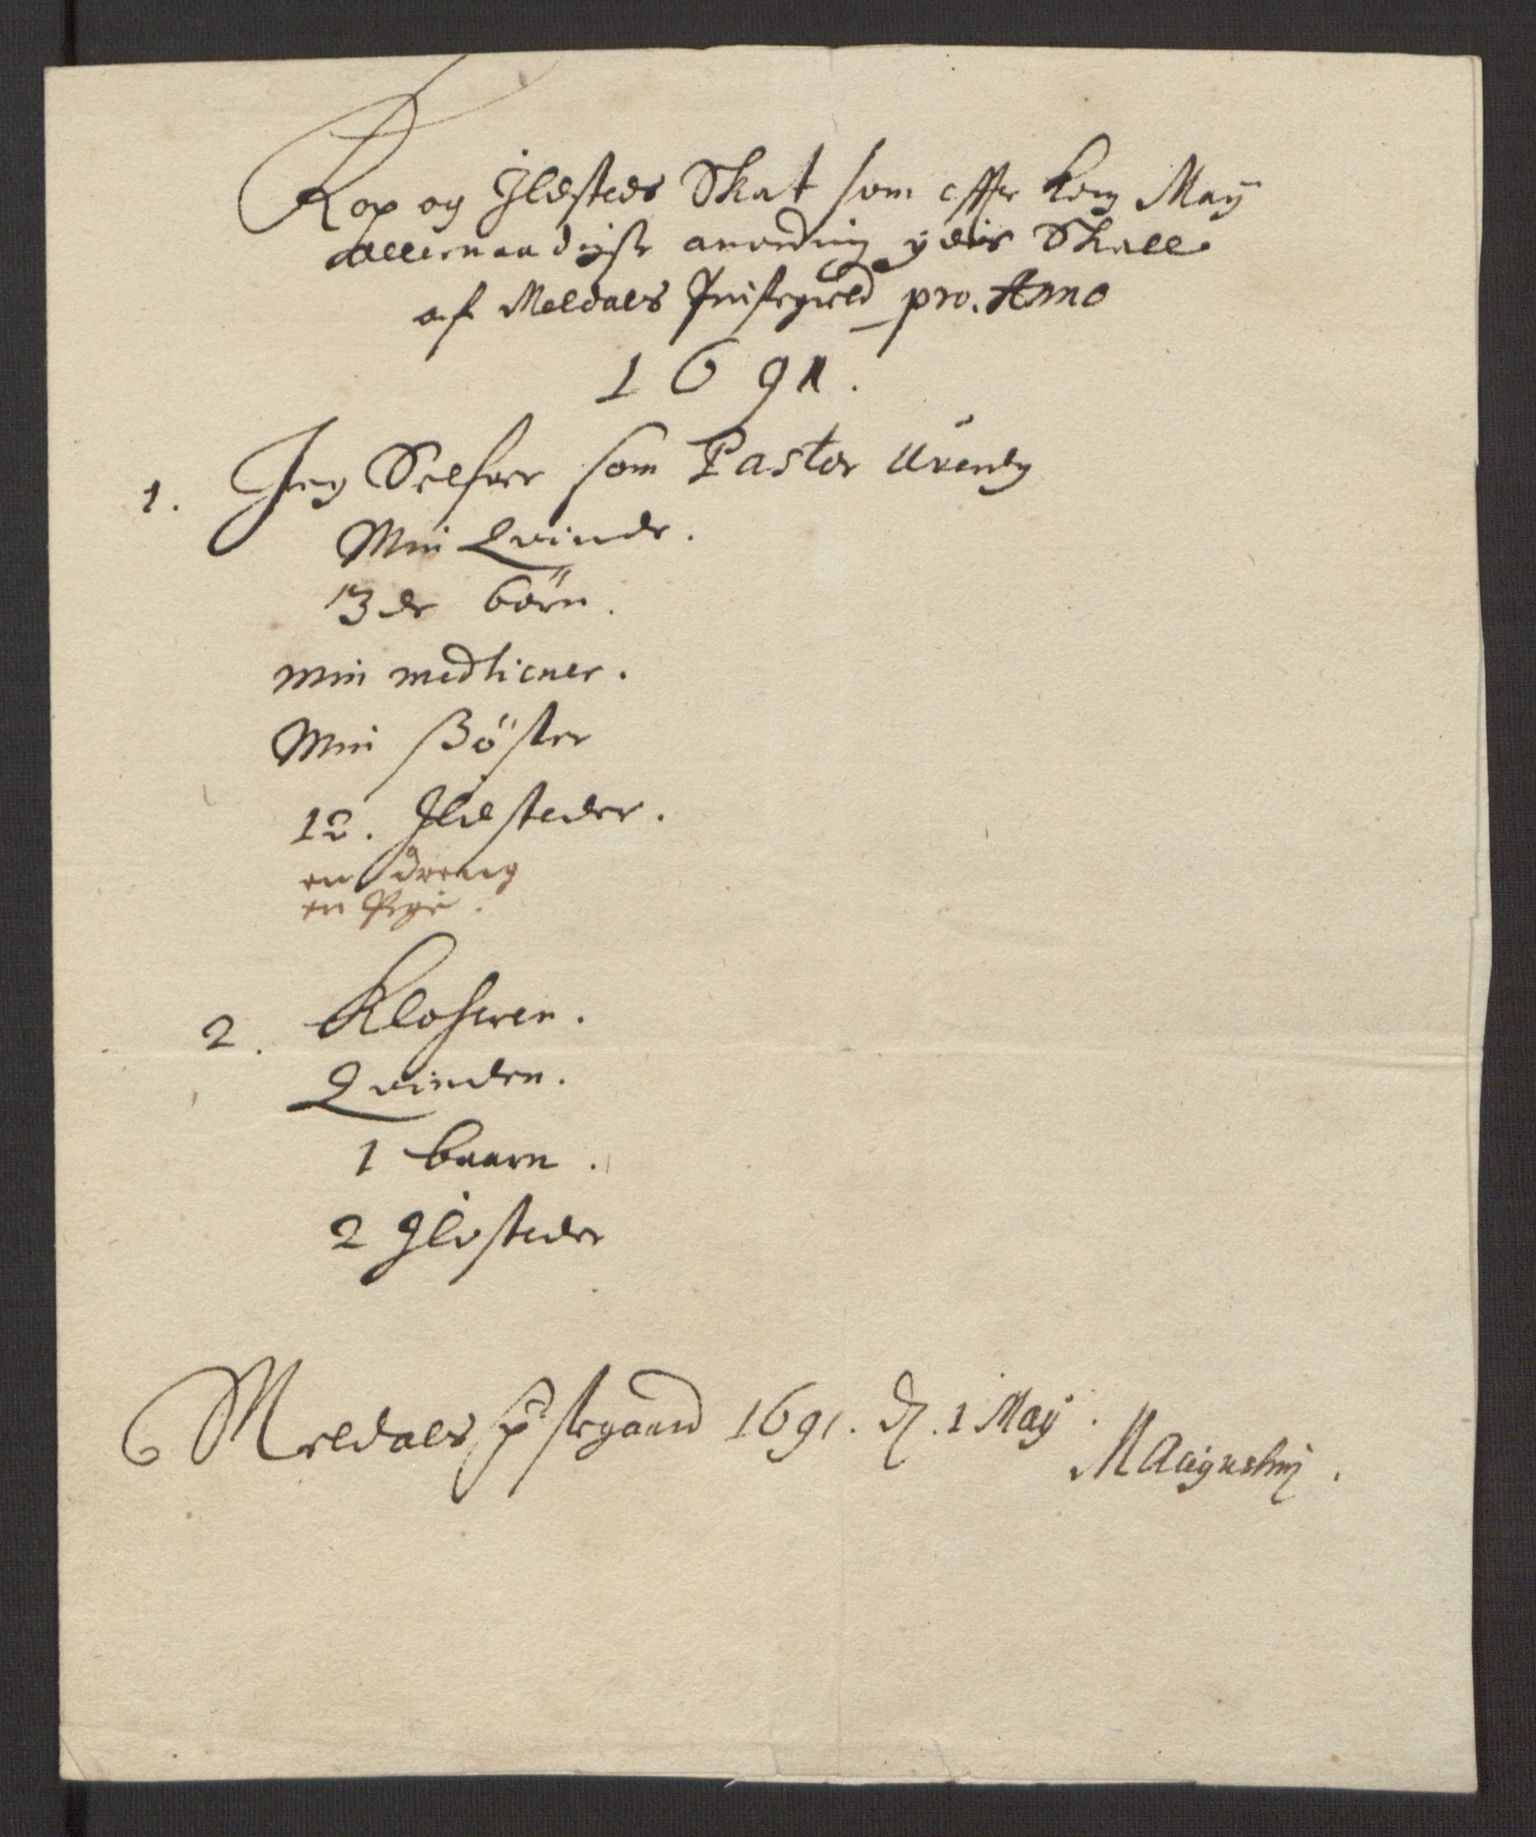 Kop og Ildsteds Skat som effter Kong Maÿ
allernaadigste anordning ydis Skall
af Meldals Præstegield pro. Anno
1691.
1. Jeg Selfver som Pastor
Min Qvinde.
3 de börn.
min medtiener.
Min Söster
12. Ildsteder.
en dreng
en Pige.
2. Klocheren.
Qvinden.
1 baarn.
2 Ildsteder
Meldals Pstegaard 1691. d. 1 Maÿ.
MAugustinj.